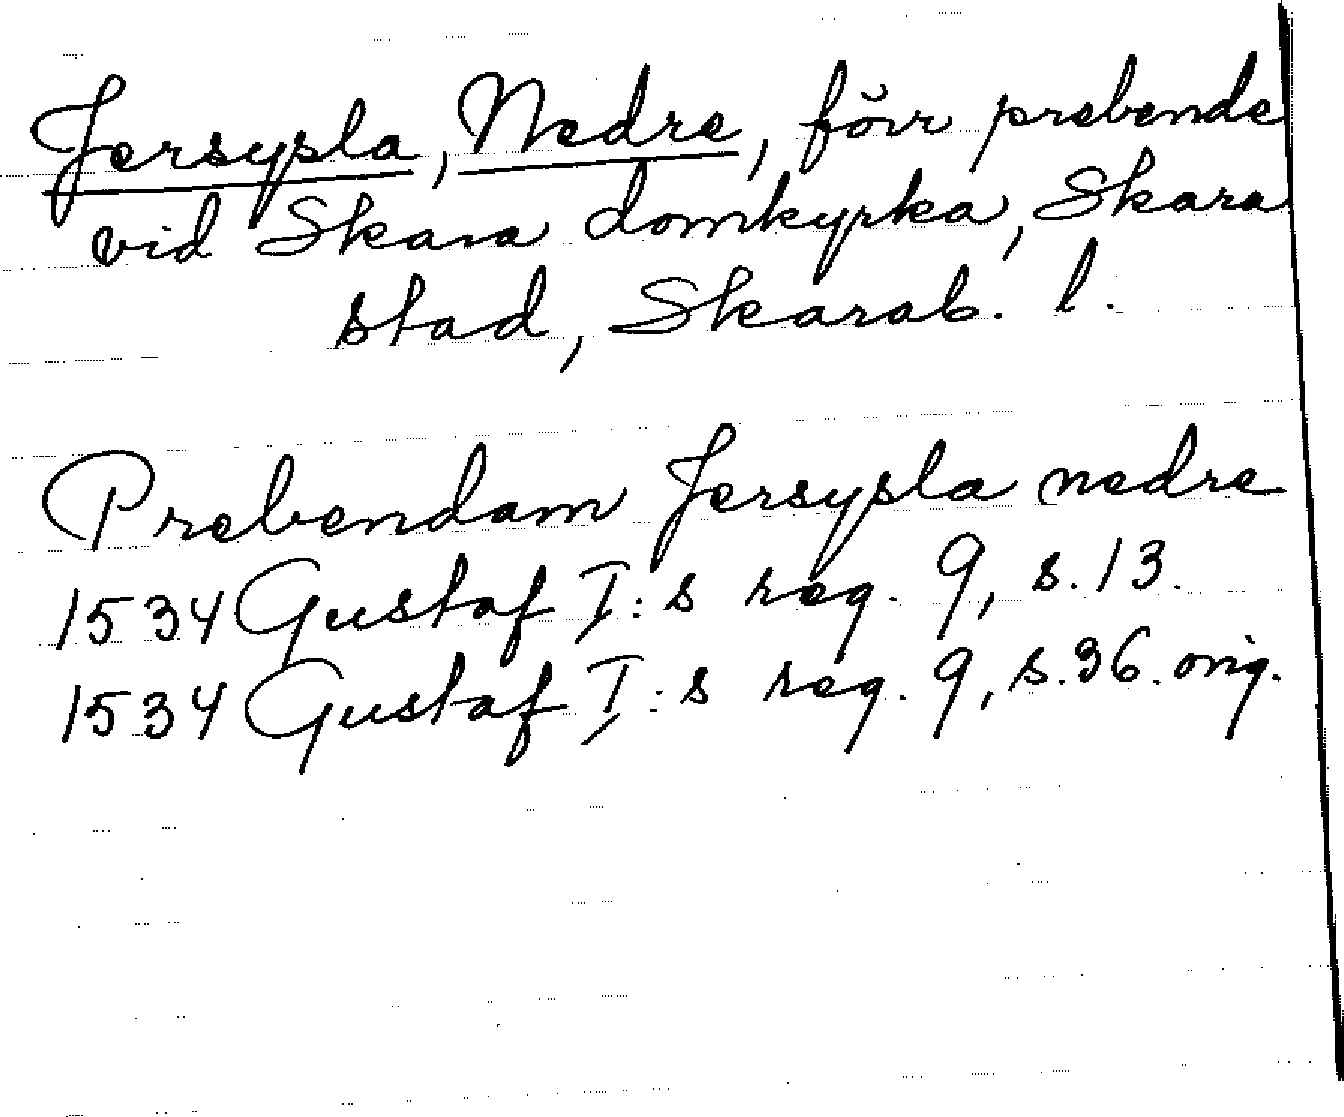 Jersysla, Nedre, förr prebende
vid Skara domkyrka, Skara
stad, Skarab. l.
Prebendam Jersysla nedre
1534 Gustaf I:s reg. 9, s. 13.
1534 Gustaf I:s reg. 9, s. 36. orig.